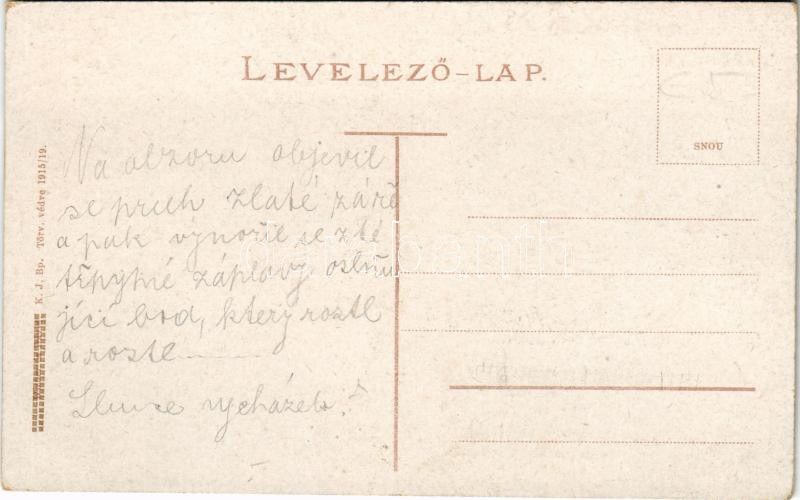 LEVELEZŐ-LAP.
SNOU
K. J., Bp. Törv. védve 1915/19.
Na obzoru objevil
se pruh zlaté záře
a pak vynořil se z té
třpytné záplavy oslňu
jící bod, který rostl
a rostl
Slunce vycházelo!
darabanth